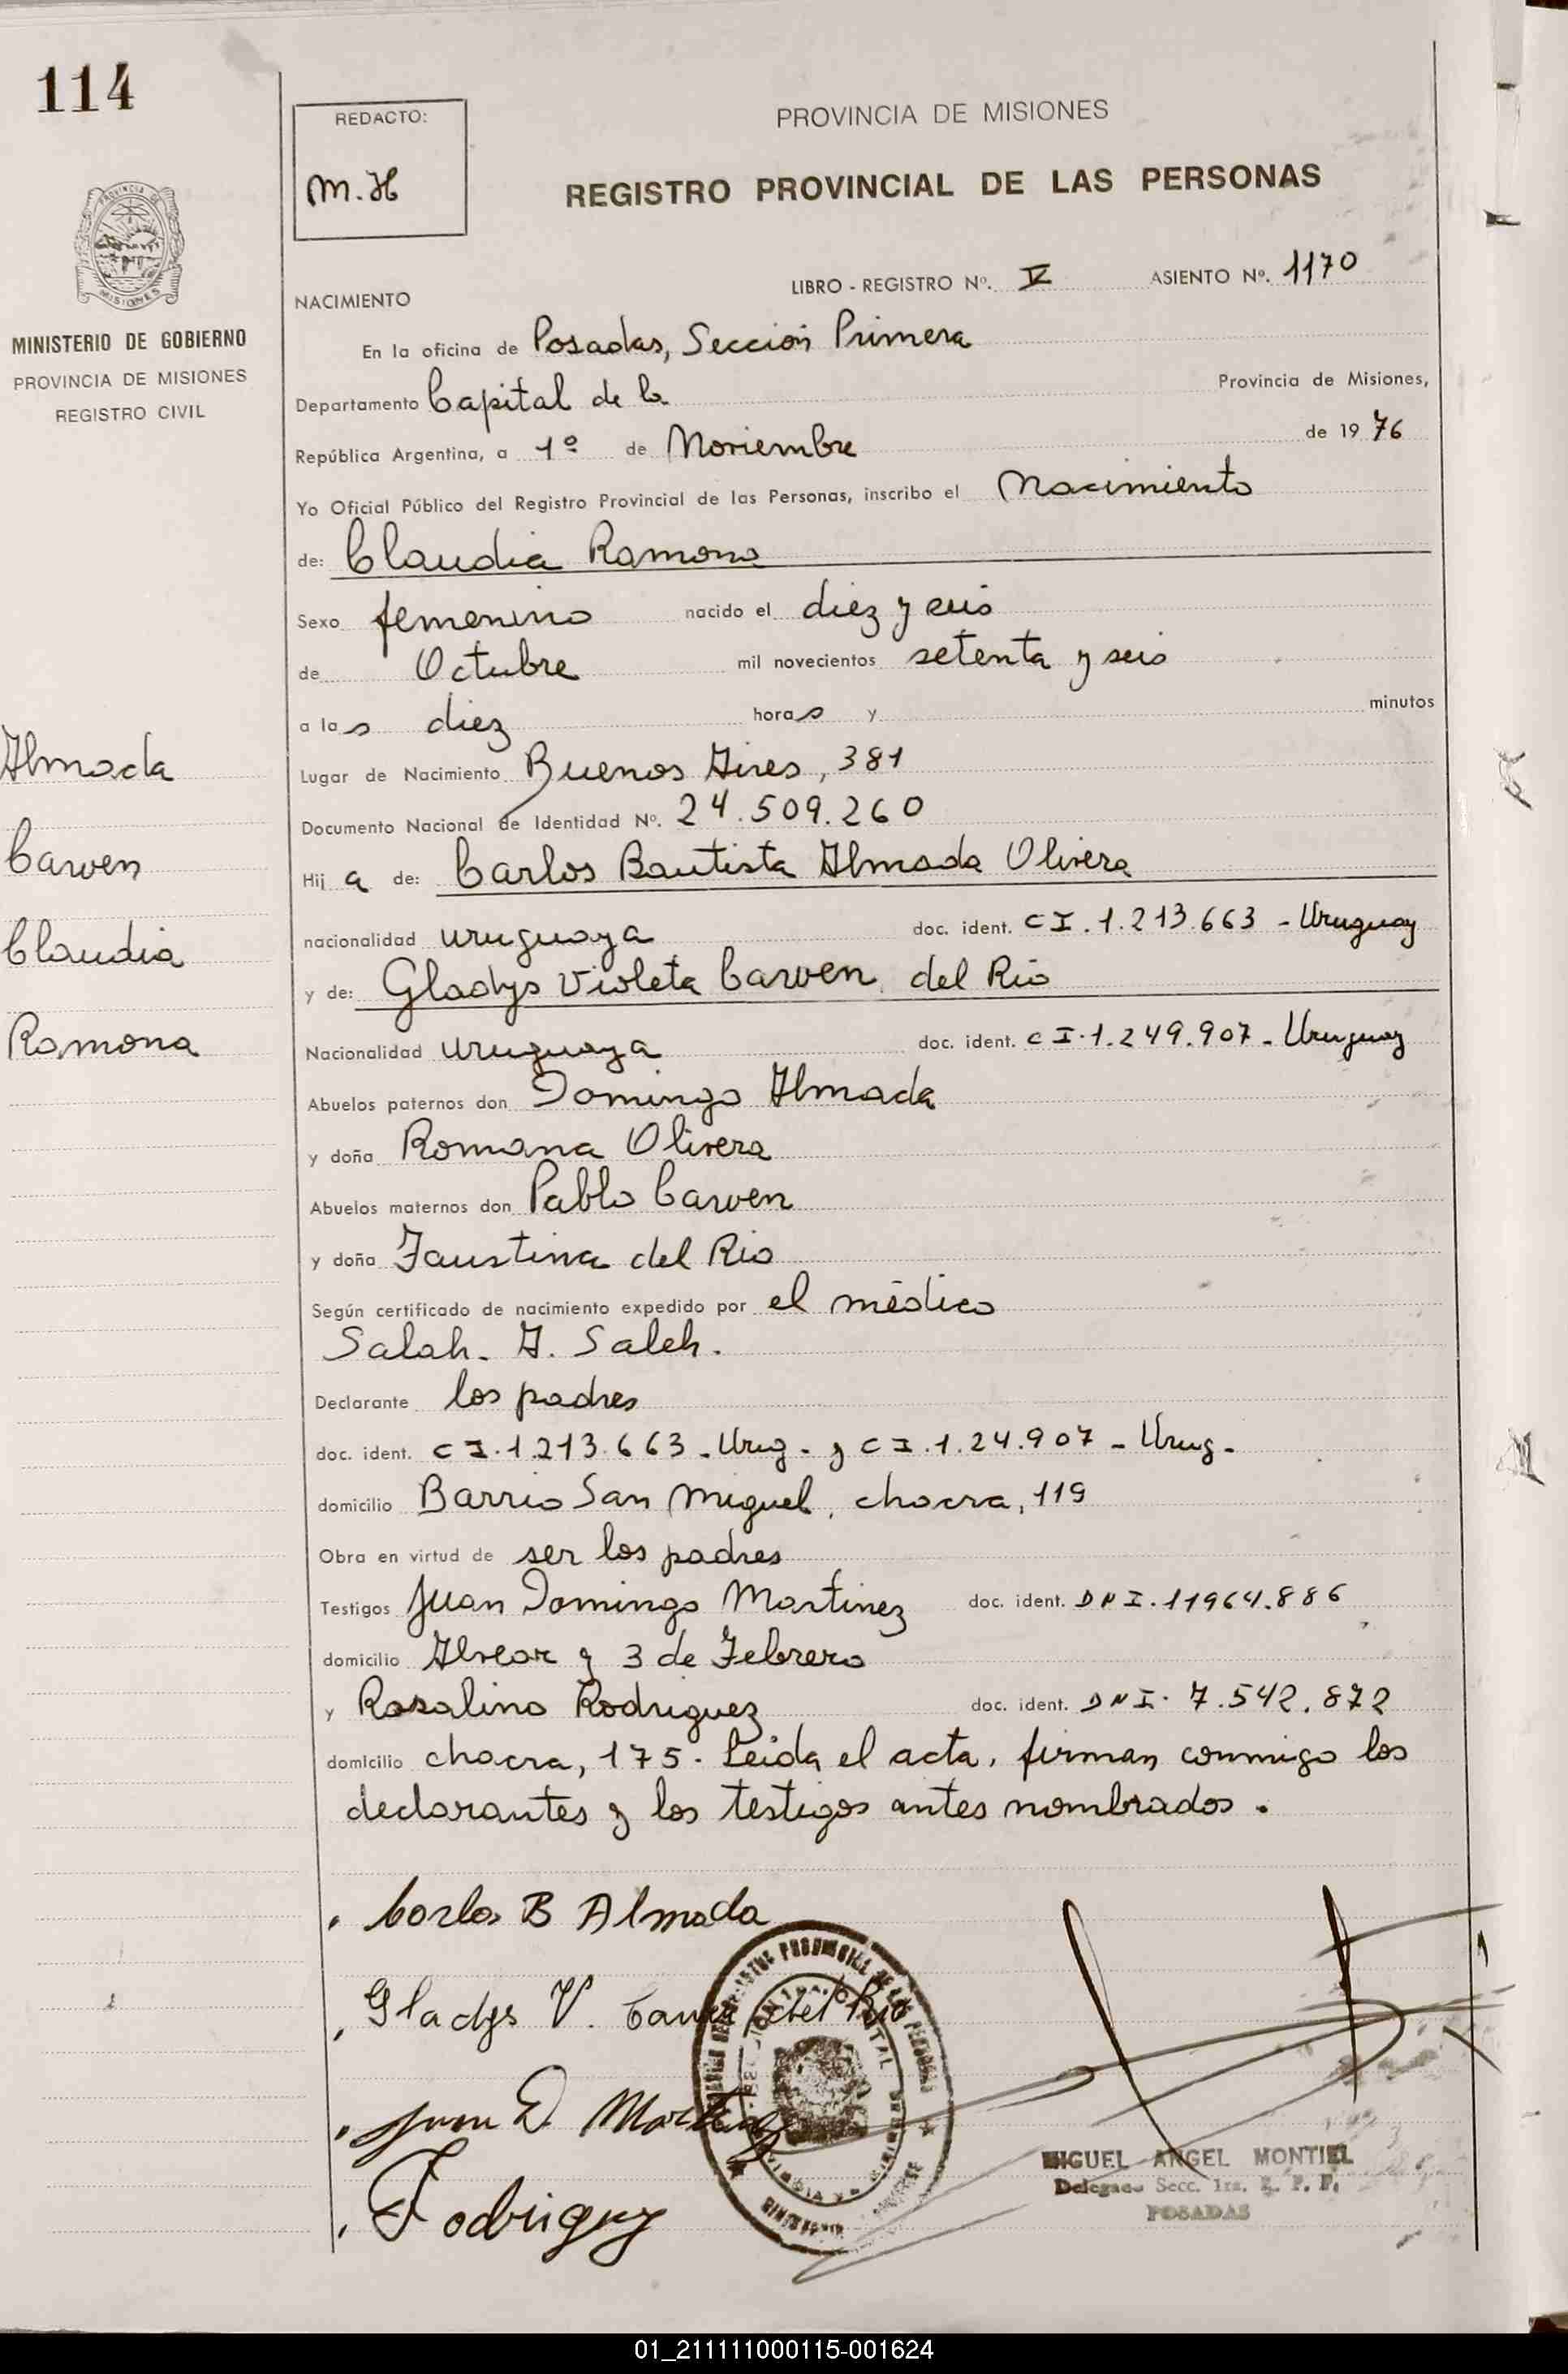 114
REDACTO:
M.H
PROVINCIA DE MISIONES
REGISTRO PROVINCIAL DE LAS PERSONAS
PROVINCIA DE
MISIONES
MINISTERIO DE GOBIERNO
PROVINCIA DE MISIONES
REGISTRO CIVIL
NACIMIENTO
LIBRO - REGISTRO Nº. V ASIENTO Nº. 1170
En la oficina de Posadas, Sección Primera
Departamento Capital de la Provincia de Misiones,
República Argentina, a 1º de Noviembre de 1976
Yo Oficial Público del Registro Provincial de las Personas, inscribo el Nacimiento
de: Claudia Ramona
Sexo femenino nacido el diez y seis
de Octubre mil novecientos setenta y seis
a las diez horas y minutos
Lugar de Nacimiento Buenos Aires, 381
Documento Nacional de Identidad Nº. 24.509.260
Hija de: Carlos Bautista Almada Olivera
nacionalidad uruguaya doc. ident. CI.1.213.663 - Uruguay
y de: Gladys Violeta Carven del Rio
Nacionalidad uruguaya doc. ident. CI.1.249.907 - Uruguay
Abuelos paternos don Domingo Almada
y doña Romana Olivera
Abuelos maternos don Pablo Carven
y doña Faustina del Rio
Según certificado de nacimiento expedido por el médico
Salah. A. Saleh.
Declarante los padres
doc. ident. CI.1.213.663 - Urug. y CI.1.24.907 - Urug.
domicilio Barrio San Miguel, chacra, 119
Obra en virtud de ser los padres
Testigos Juan Domingo Martinez doc. ident. DNI.11964.886
domicilio Alvear y 3 de Febrero
y Rosalino Rodriguez doc. ident. DNI. 7.542.872
domicilio chacra, 175. Leida el acta, firman conmigo los
declarantes y los testigos antes nombrados.
Almada
Carven
Claudia
Ramona
Carlos B Almada
Gladys V. Carven del Rio
Juan D. Martinez
Rodriguez
MIGUEL ANGEL MONTIEL
Delegado Secc. 1ra. R. P. P.
POSADAS
01_211111000115-001624